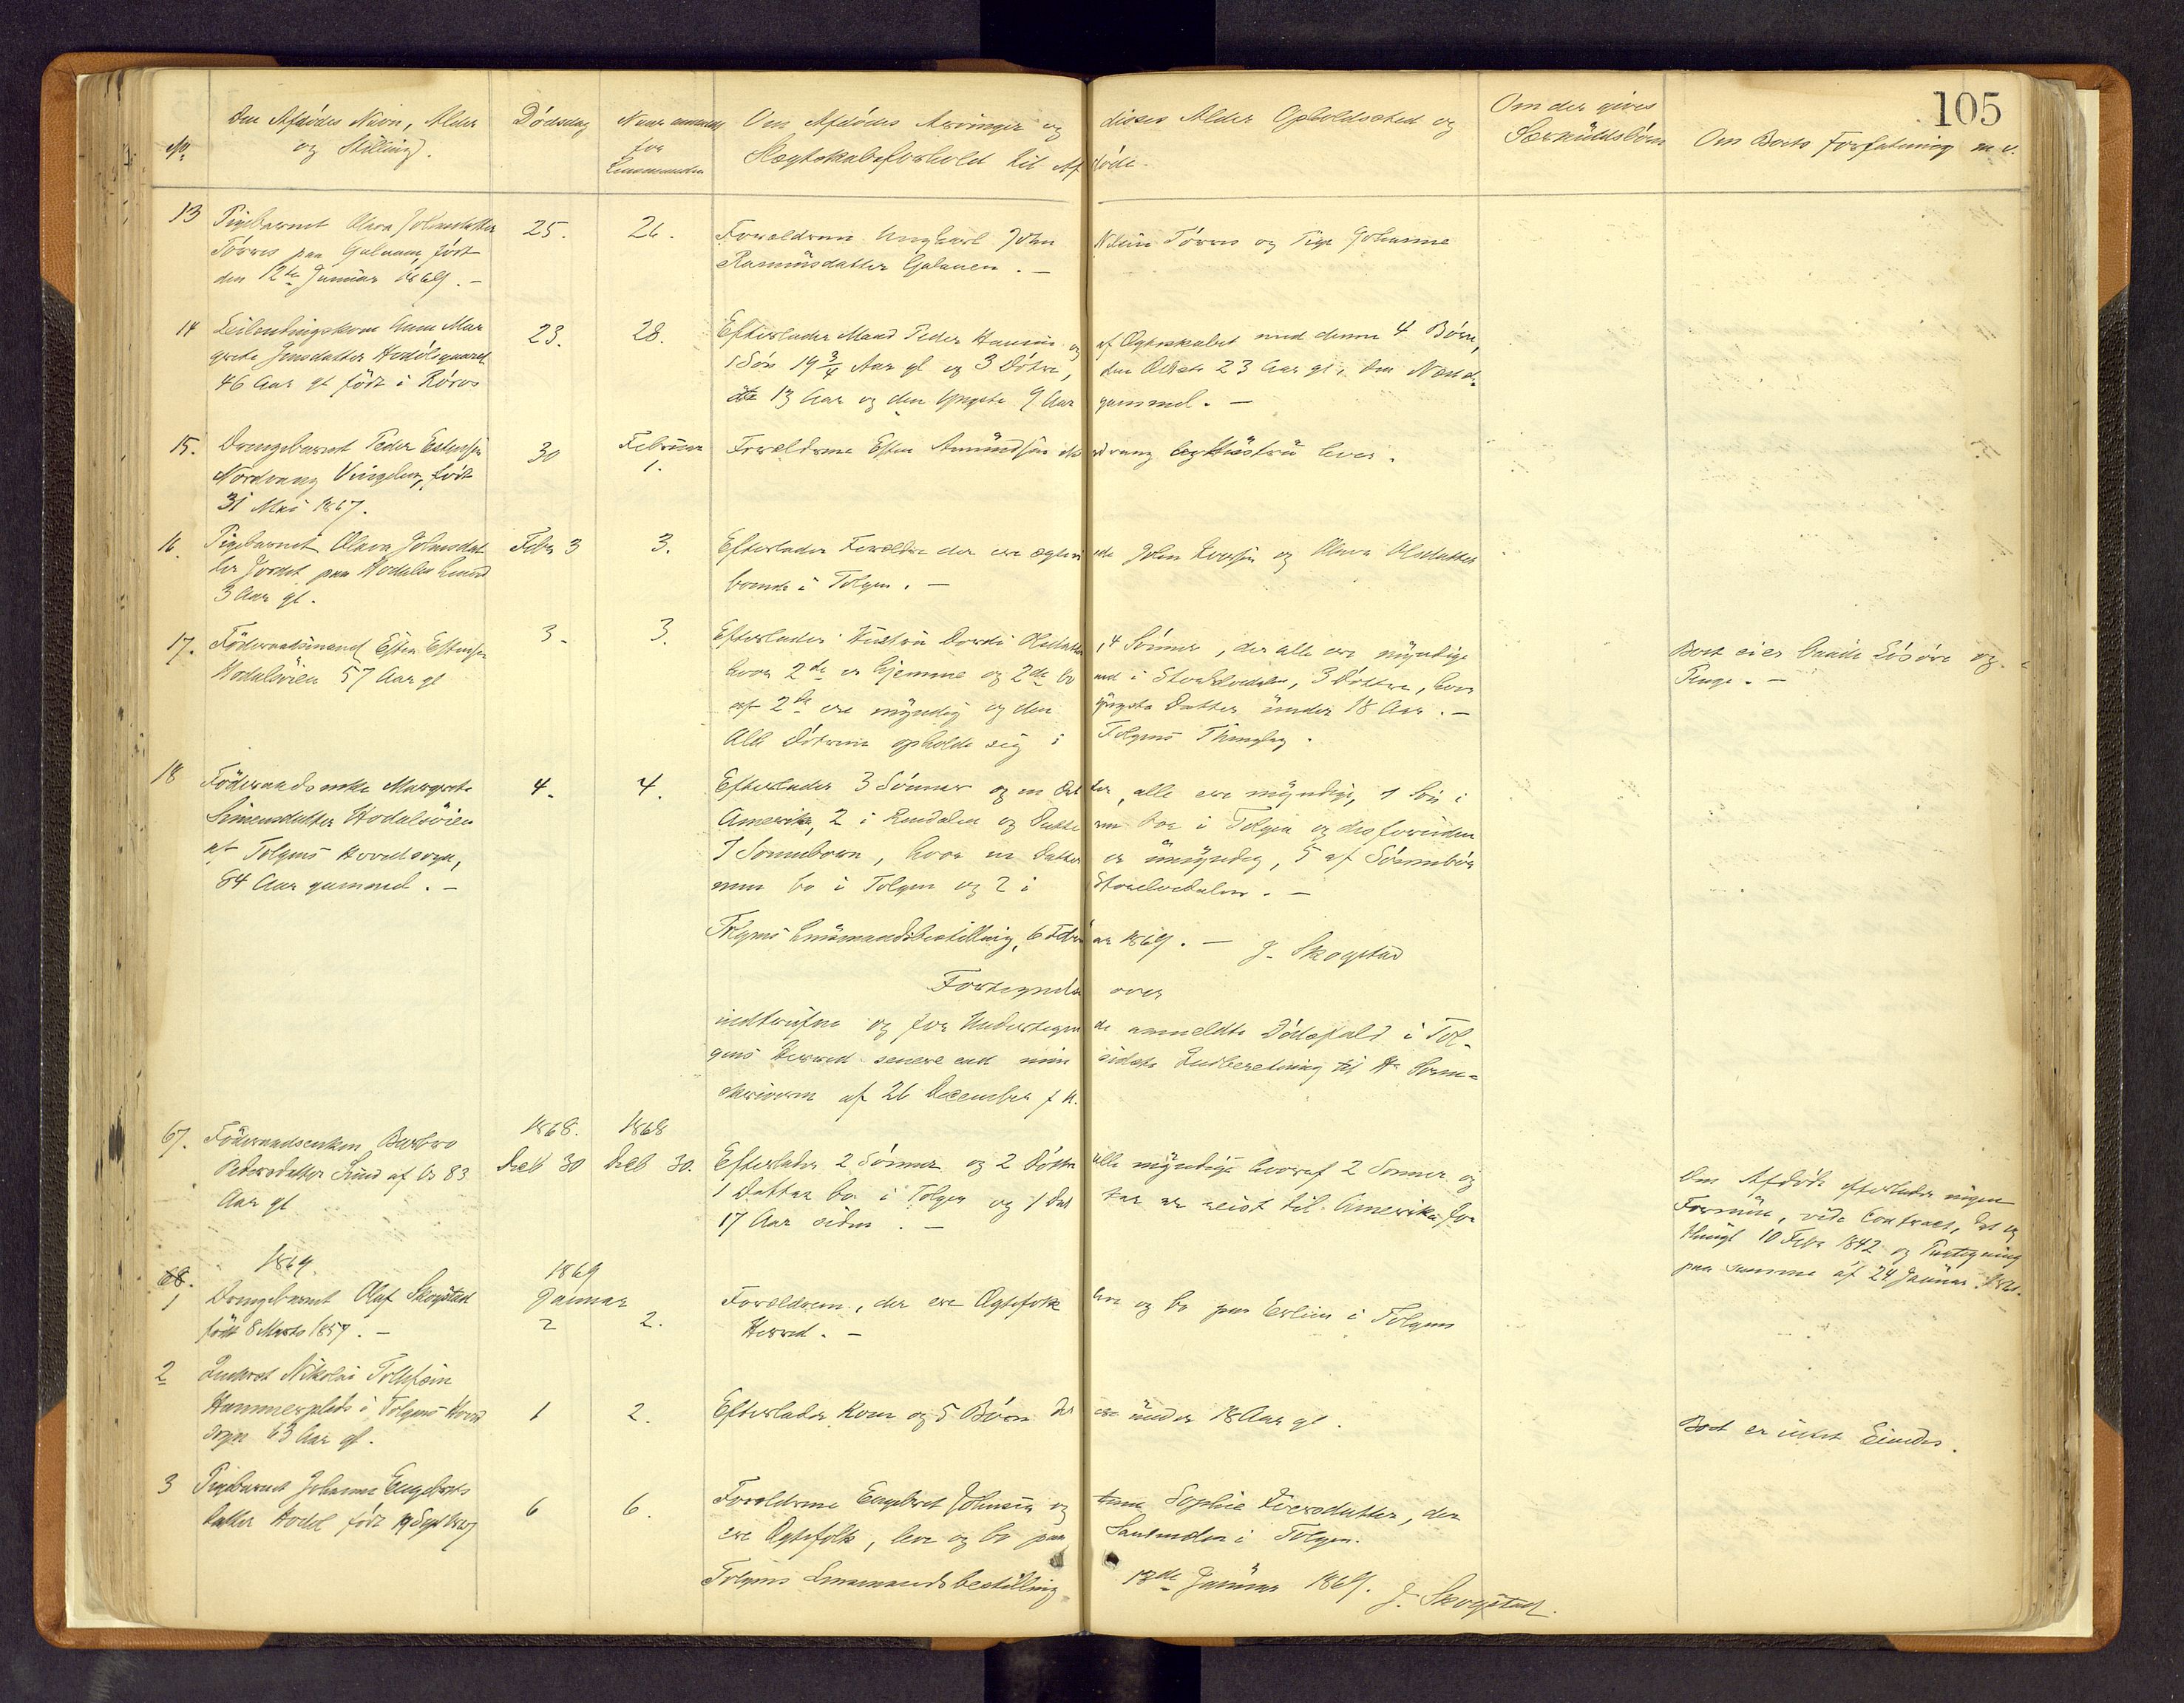 105
No
Den Afdødes Navn, Alder
og Stilling.
Dødsdag
Naar anmeldt
for
Lensmanden
Om Afdødes Arvinger og disses Alder Opholdssted og
Slægtskabsforhold til Afdøde.
Om der gives
Særkuldsbörn
Om Boets Forfatning m. v.
13
Pigebarnet Olava Johnsdatter
Tørres paa Galaaen, født
den 12te Januar 1869. -
25.
26.
Forældrene Ungkarl John Nilsen Tørres og Pige Johanne
Rasmusdatter Galaaen. -
14
Leilendingskone Anne Mar
grete Jensdatter Hodølsgaard
46 Aar gl født i Røros
23.
28.
Efterlader Mand Peder Hansen og af Ægteskabet med denne 4 Børn,
1 Søn 19 3/4 Aar gl og 3 Døtre, den Ældste 23 Aar gl, den Næst-
ste 13 Aar og den Yngste 9 Aar gammel. -
15.
Drengebarnet Peder Estensen
Nordvang Vingelen, født
31 Mai 1867.
30
Februar
1.
Forældrene Esten Amundsen Nordvang og Hustru lever.
16.
Pigebarnet Olava Johnsdat
ter Jordet paa Hodalen
3 Aar gl.
Febr 3
3.
Efterlader Forældre der ere ægteviede John Iversen og Olava Olsdatter
boende i Tolgen. -
17.
Föderaadsmand Esten Estensen
Hodalsöien 57 Aar gl
3.
3.
Efterlader Hustru Dordi Olsdatter, 4 Sønner, der alle ere myndige
hvoraf 2de er hjemme og 2de boend i Storelvdalen, 3 Døttre, hvor
af 2de ere myndig og den yngste Datter under 18 Aar. -
Alle Døtrene opholde sig i Tolgens Thinglag.
Boet eier baade Løsøre og
Penge. -
18
Föderaadsenke Margrete
Simensdatter Hodalsöien
af Tolgens Hovedsogn,
84 Aar gammel. -
4.
4.
Efterlader 3 Sønner og en Datter, alle ere myndige, 1 Søn i
Amerika, 2 i Rendalen og Datteren boe i Tolgen og desforuden
7 Sønnebørn, hvor en Datter er umyndig, 5 af Sønnebør
nene bo i Tolgen og 2 i Storelvedalen. -
Tolgens Lensmandsbestilling, 6 Februar 1869. - J. Skogstad
Fortegnelse over
indtrufne og for Undertegnede anmeldte Dødsfald i Tol-
gens Herred senere end min sidste Indberetning til Hr Soren-
skriveren af 26 December f A.
67.
Föderaadsenken Barbro
Pedersdatter Lund af Os 83
Aar gl
1868.
Decb 30
1868
Decb 30.
Efterlader 2 Sønner og 2 Døttre alle myndige hvoraf 2 Sønner og
1 Datter bo i Tolgen og 1 Datter er reist til Amerika for
17 Aar siden. -
Den Afdøde efterlader ingen
Formue, vide Contract, dat og
thingl 10 Febr 1842 og Paategning
paa samme af 24 Januar
1869.
68.
1
Drengebarnet Oluf Skogstad
født 8 Marts 1857. -
1869
Januar
2
2.
Forældrene, der ere Ægtefolk leve og bo paa Erlien i Tolgens
Herred. -
2
Inderst Nikolai Tollefsen
Hammerplads i Tolgens Hoved
sogn 63 Aar gl.
1
2.
Efterlader Kone og 5 Børn der ere under 18 Aar gl.
Boet er intet Eiendes.
3
Pigebarnet Johanne Engebrets
datter Hodøl født 19 Septbr
6
6.
Forældrene Engebret Johnsen og Hustrue Sophie Iversdatter, der
ere Ægtefolk, leve og bo paa i Tolgen.
Tolgens Lensmandsbestilling 13de Januar 1869. J. Skogstad.